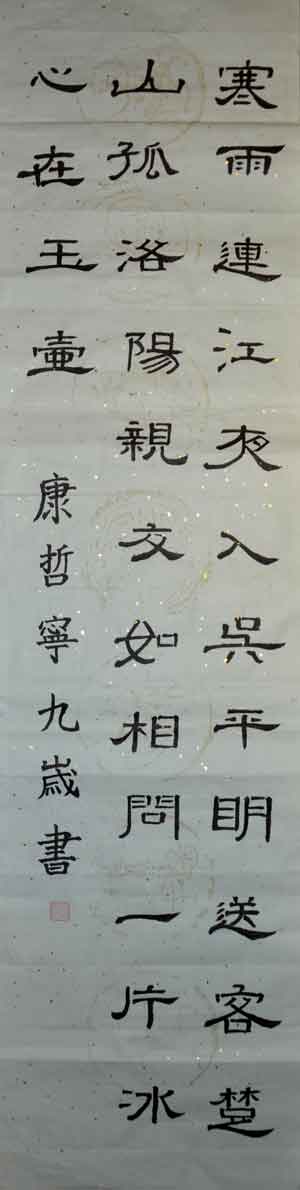 寒雨連江夜入吳平明送客楚
山孤洛陽親交如相問一片冰
心在玉壺
康哲寧九歲書